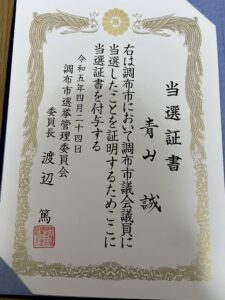 当選証書
青山誠
右は調布市において調布市議会議員に
当選したことを証明するためここに
当選証書を付与する
令和五年四月二十四日
調布市選挙管理委員会
委員長 渡辺 篤